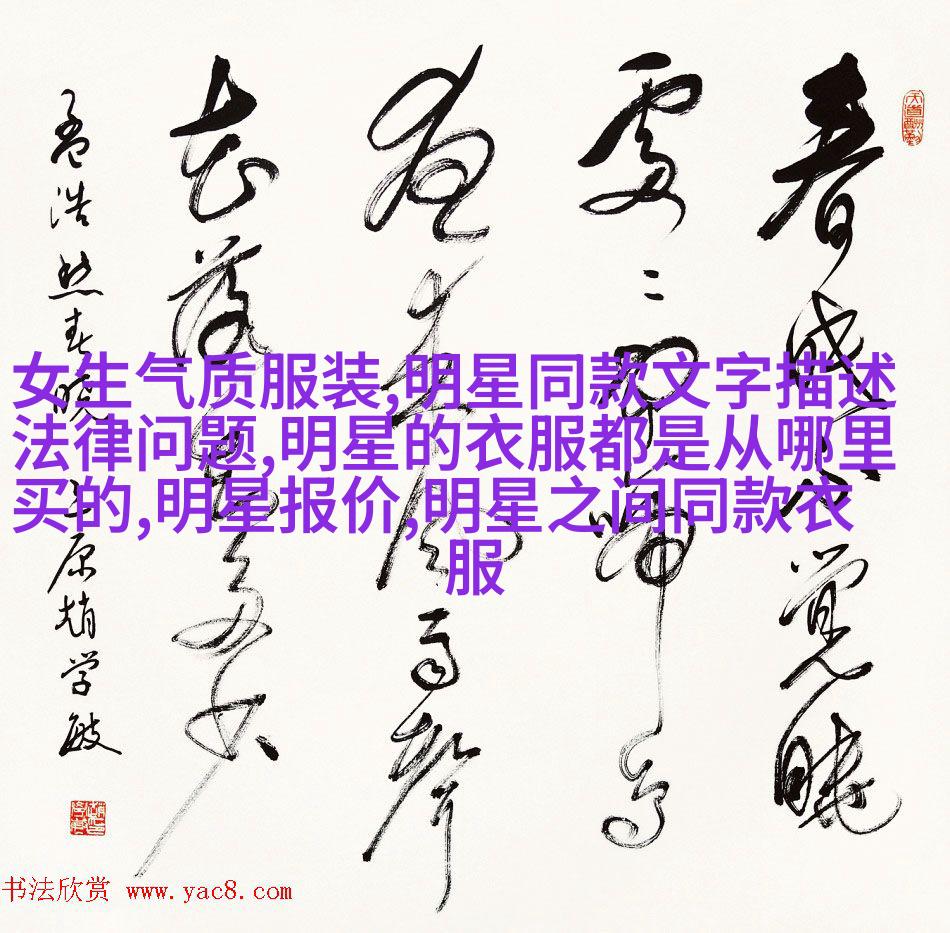 春眠不觉晓
處々聞啼鸟
夜来風雨聲
花落知多少
孟浩然春晓
原趙学敏
女生气质服装,明星同款文字描述
法律问题,明星的衣服都是从哪里
买的,明星报价,明星之间同款衣
服
书法欣赏 www.yac8.com